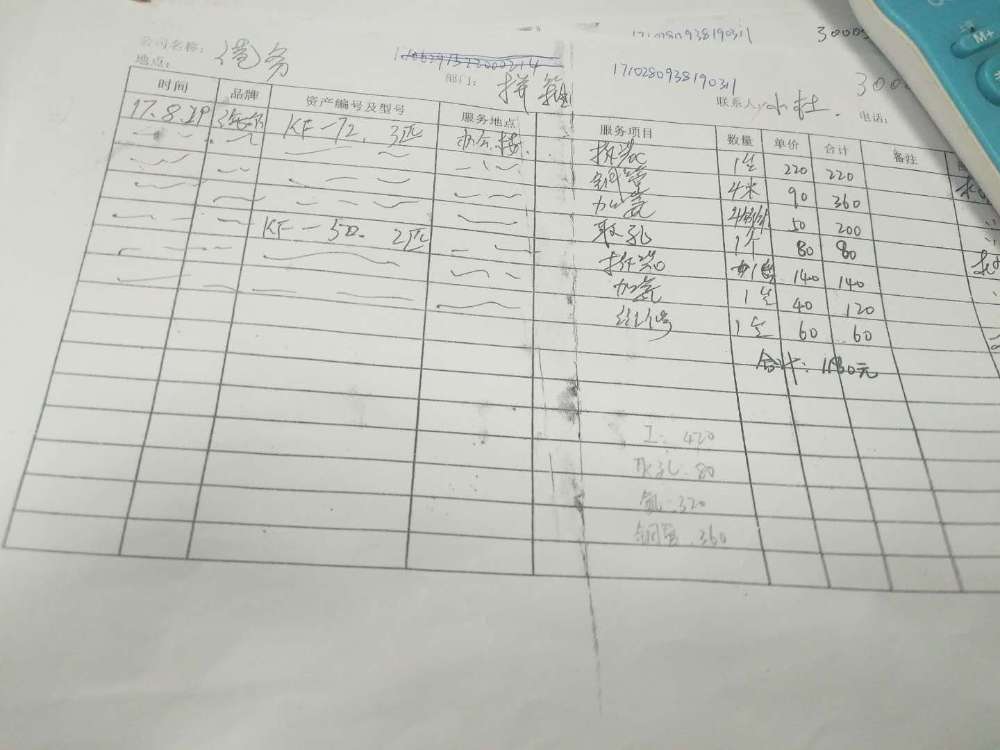 171028093819031 3000
公司名称: 港务 171028093819031 300
地点: 部门: 拼箱 联系人 小杜. 电话:
时间 品牌 资产编号及型号 服务地点 服务项目 数量 单价 合计 备注
17.8.29 KF-72. 3匹 办公楼 拆装 1台 220 220
铜管 4米 90 360
加氟 50 200
取孔 1个 80 80
KF-50. 2匹 拆装 140 140
加氟 1台 40 120
1台 60 60
合计: 1180元
工: 420
取孔. 80
氟. 320
铜管. 360
M+